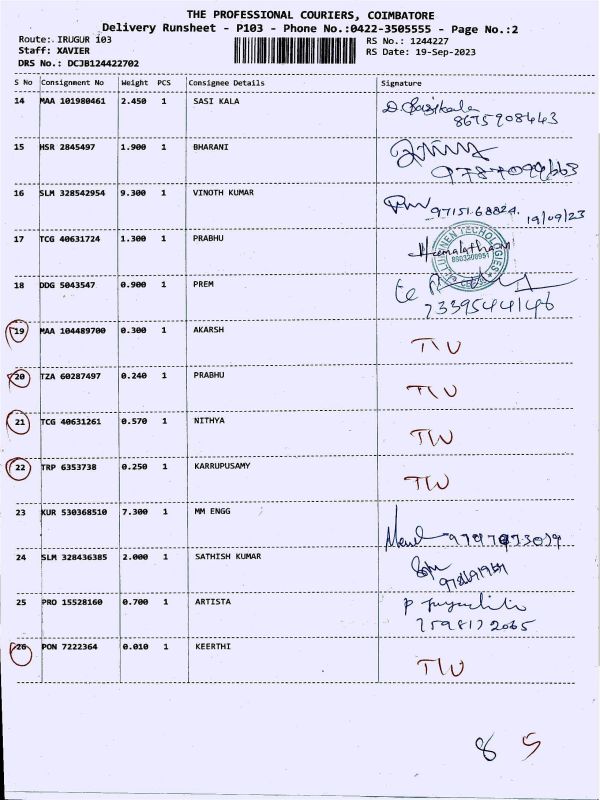 THE PROFESSIONAL COURIERS, COIMBATORE
Delivery Runsheet - P103 - Phone No.:0422-3505555 - Page No.:2
Route: IRUGUR 103 RS No.: 1244227
Staff: XAVIER RS Date: 19-Sep-2023
DRS No.: DCJB124422702
S No Consignment No Weight PCS Consignee Details Signature
14 MAA 101980461 2.450 1 SASI KALA D. Sasikala
8675908443
15 HSR 2845497 1.900 1 BHARANI
16 SLM 328542954 9.300 1 VINOTH KUMAR 9715168824 19/09/23
17 TCG 40631724 1.300 1 PRABHU Hemalatha
18 DDG 5043547 0.900 1 PREM
7339544146
19 MAA 104489700 0.300 1 AKARSH TW
20 TZA 60287497 0.240 1 PRABHU TW
21 TCG 40631261 0.570 1 NITHYA TW
22 TRP 6353738 0.250 1 KARRUPUSAMY TW
23 KUR 530368510 7.300 1 MM ENGG
24 SLM 328436385 2.000 1 SATHISH KUMAR
25 PRO 15528160 0.700 1 ARTISTA
7598172065
26 PON 7222364 0.010 1 KEERTHI TW
8 5